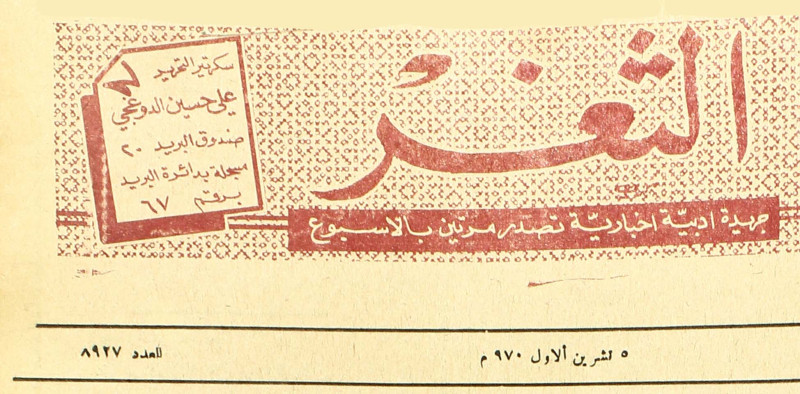 الثغر
جريدة ادبية اخبارية تصدر مرتين بالاسبوع
سكرتير التحرير
علي حسين الدوغجي
صندوق البريد ٢٠
مسجلة بدائرة البريد
برقم ٦٧
٥ تشرين ألاول ٩٧٠ م
العدد ٨٩٢٧